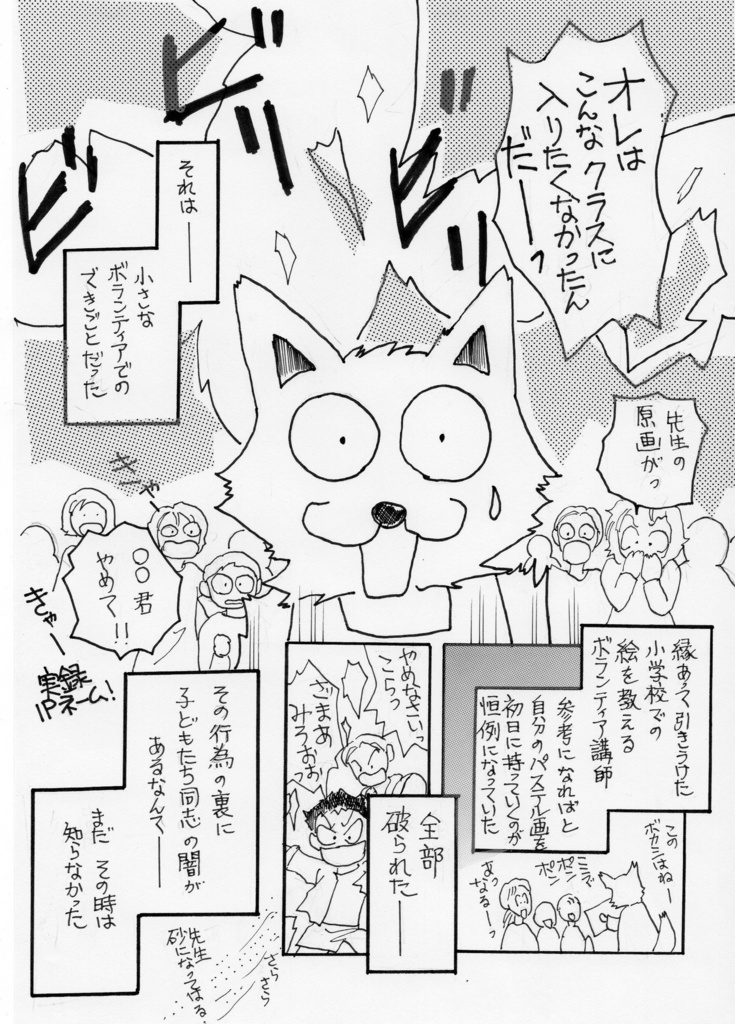 オレは
こんなクラスに
入りたくなかったん
だーっ
ビリ
ビリ
ビリ
ビリ
それは──
小さな
ボランティアでの
できごとだった
先生の
原画がっ
きゃー
○○君
やめて!!
きゃー
実録
1Pネーム!
縁あって引きうけた
小学校での
絵を教える
ボランティア講師
参考になればと
自分のパステル画を
初日に持っていくのが
恒例になっていた
この
ボカシはねー
ポン
ポン
なるーっ
やめなさいっ
こらっ
ざまあ
みろおおっ
全部
破られた──
その行為の裏に
子どもたち同志の闇が
あるなんて──
まだその時は
知らなかった
先生
砂になってはる
さら
さら